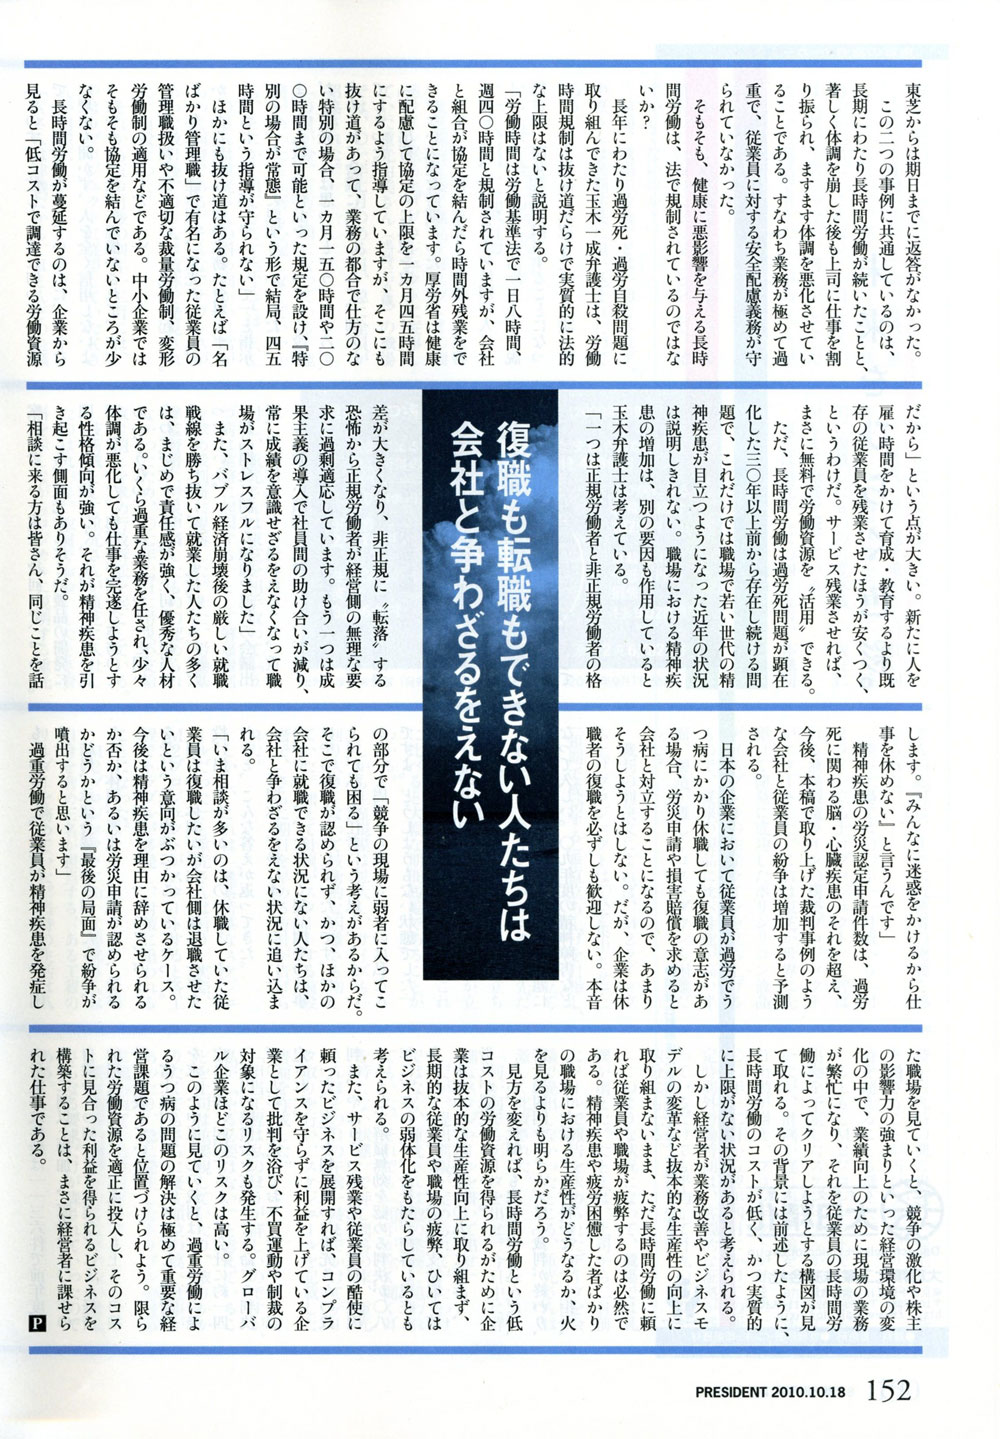 東芝からは期日までに返答がなかった。
　この二つの事例に共通しているのは、
長期にわたり長時間労働が続いたことと、
著しく体調を崩した後も上司に仕事を割
り振られ、ますます体調を悪化させてい
ることである。すなわち業務が極めて過
重で、従業員に対する安全配慮義務が守
られていなかった。
　そもそも、健康に悪影響を与える長時
間労働は、法で規制されているのではな
いか?
　長年にわたり過労死・過労自殺問題に
取り組んできた玉木一成弁護士は、労働
時間規制は抜け道だらけで実質的に法的
な上限はないと説明する。
「労働時間は労働基準法で一日八時間、
週四〇時間と規制されていますが、会社
と組合が協定を結んだら時間外残業をで
きることになっています。厚労省は健康
に配慮して協定の上限を一カ月四五時間
にするよう指導していますが、そこにも
抜け道があって、業務の都合で仕方のな
い特別の場合、一カ月一五〇時間や二〇
〇時間まで可能といった規定を設け、『特
別の場合が常態』という形で結局、四五
時間という指導が守られない」
　ほかにも抜け道はある。たとえば「名
ばかり管理職」で有名になった従業員の
管理職扱いや不適切な裁量労働制、変形
労働制の適用などである。中小企業では
そもそも協定を結んでいないところが少
なくない。
　長時間労働が蔓延するのは、企業から
見ると「低コストで調達できる労働資源
だから」という点が大きい。新たに人を
雇い時間をかけて育成・教育するより既
存の従業員を残業させたほうが安くつく、
というわけだ。サービス残業させれば、
まさに無料で労働資源を〝活用〟できる。
　ただ、長時間労働は過労死問題が顕在
化した三〇年以上前から存在し続ける問
題で、これだけでは職場で若い世代の精
神疾患が目立つようになった近年の状況
は説明しきれない。職場における精神疾
患の増加は、別の要因も作用していると
玉木弁護士は考えている。
「一つは正規労働者と非正規労働者の格
復職も転職もできない人たちは
会社と争わざるをえない
差が大きくなり、非正規に〝転落〟する
恐怖から正規労働者が経営側の無理な要
求に過剰適応しています。もう一つは成
果主義の導入で社員間の助け合いが減り、
常に成績を意識せざるをえなくなって職
場がストレスフルになりました」
　また、バブル経済崩壊後の厳しい就職
戦線を勝ち抜いて就業した人たちの多く
は、まじめで責任感が強く、優秀な人材
である。いくら過重な業務を任され、少々
体調が悪化しても仕事を完遂しようとす
る性格傾向が強い。それが精神疾患を引
き起こす側面もありそうだ。
「相談に来る方は皆さん、同じことを話
します。『みんなに迷惑をかけるから仕
事を休めない』と言うんです」
　精神疾患の労災認定申請件数は、過労
死に関わる脳・心臓疾患のそれを超え、
今後、本稿で取り上げた裁判事例のよう
な会社と従業員の紛争は増加すると予測
される。
　日本の企業において従業員が過労でう
つ病にかかり休職しても復職の意志があ
る場合、労災申請や損害賠償を求めると
会社と対立することになるので、あまり
そうしようとはしない。だが、企業は休
職者の復職を必ずしも歓迎しない。本音
の部分で「競争の現場に弱者に入ってこ
られても困る」という考えがあるからだ。
そこで復職が認められず、かつ、ほかの
会社に就職できる状況にない人たちは、
会社と争わざるをえない状況に追い込ま
れる。
「いま相談が多いのは、休職していた従
業員は復職したいが会社側は退職させた
いという意向がぶつかっているケース。
今後は精神疾患を理由に辞めさせられる
か否か、あるいは労災申請が認められる
かどうかという『最後の局面』で紛争が
噴出すると思います」
　過重労働で従業員が精神疾患を発症し
た職場を見ていくと、競争の激化や株主
の影響力の強まりといった経営環境の変
化の中で、業績向上のために現場の業務
が繁忙になり、それを従業員の長時間労
働によってクリアしようとする構図が見
て取れる。その背景には前述したように、
長時間労働のコストが低く、かつ実質的
に上限がない状況があると考えられる。
　しかし経営者が業務改善やビジネスモ
デルの変革など抜本的な生産性の向上に
取り組まないまま、ただ長時間労働に頼
れば従業員や職場が疲弊するのは必然で
ある。精神疾患や疲労困憊した者ばかり
の職場における生産性がどうなるか、火
を見るよりも明らかだろう。
　見方を変えれば、長時間労働という低
コストの労働資源を得られるがために企
業は抜本的な生産性向上に取り組まず、
長期的な従業員や職場の疲弊、ひいては
ビジネスの弱体化をもたらしているとも
考えられる。
　また、サービス残業や従業員の酷使に
頼ったビジネスを展開すれば、コンプラ
イアンスを守らずに利益を上げている企
業として批判を浴び、不買運動や制裁の
対象になるリスクも発生する。グローバ
ル企業はどこのリスクは高い。
　このように見ていくと、過重労働によ
るうつ病の問題の解決は極めて重要な経
営課題であると位置づけられよう。限ら
れた労働資源を適正に投入し、そのコス
トに見合った利益を得られるビジネスを
構築することは、まさに経営者に課せら
れた仕事である。
P
PRESIDENT 2010.10.18 152